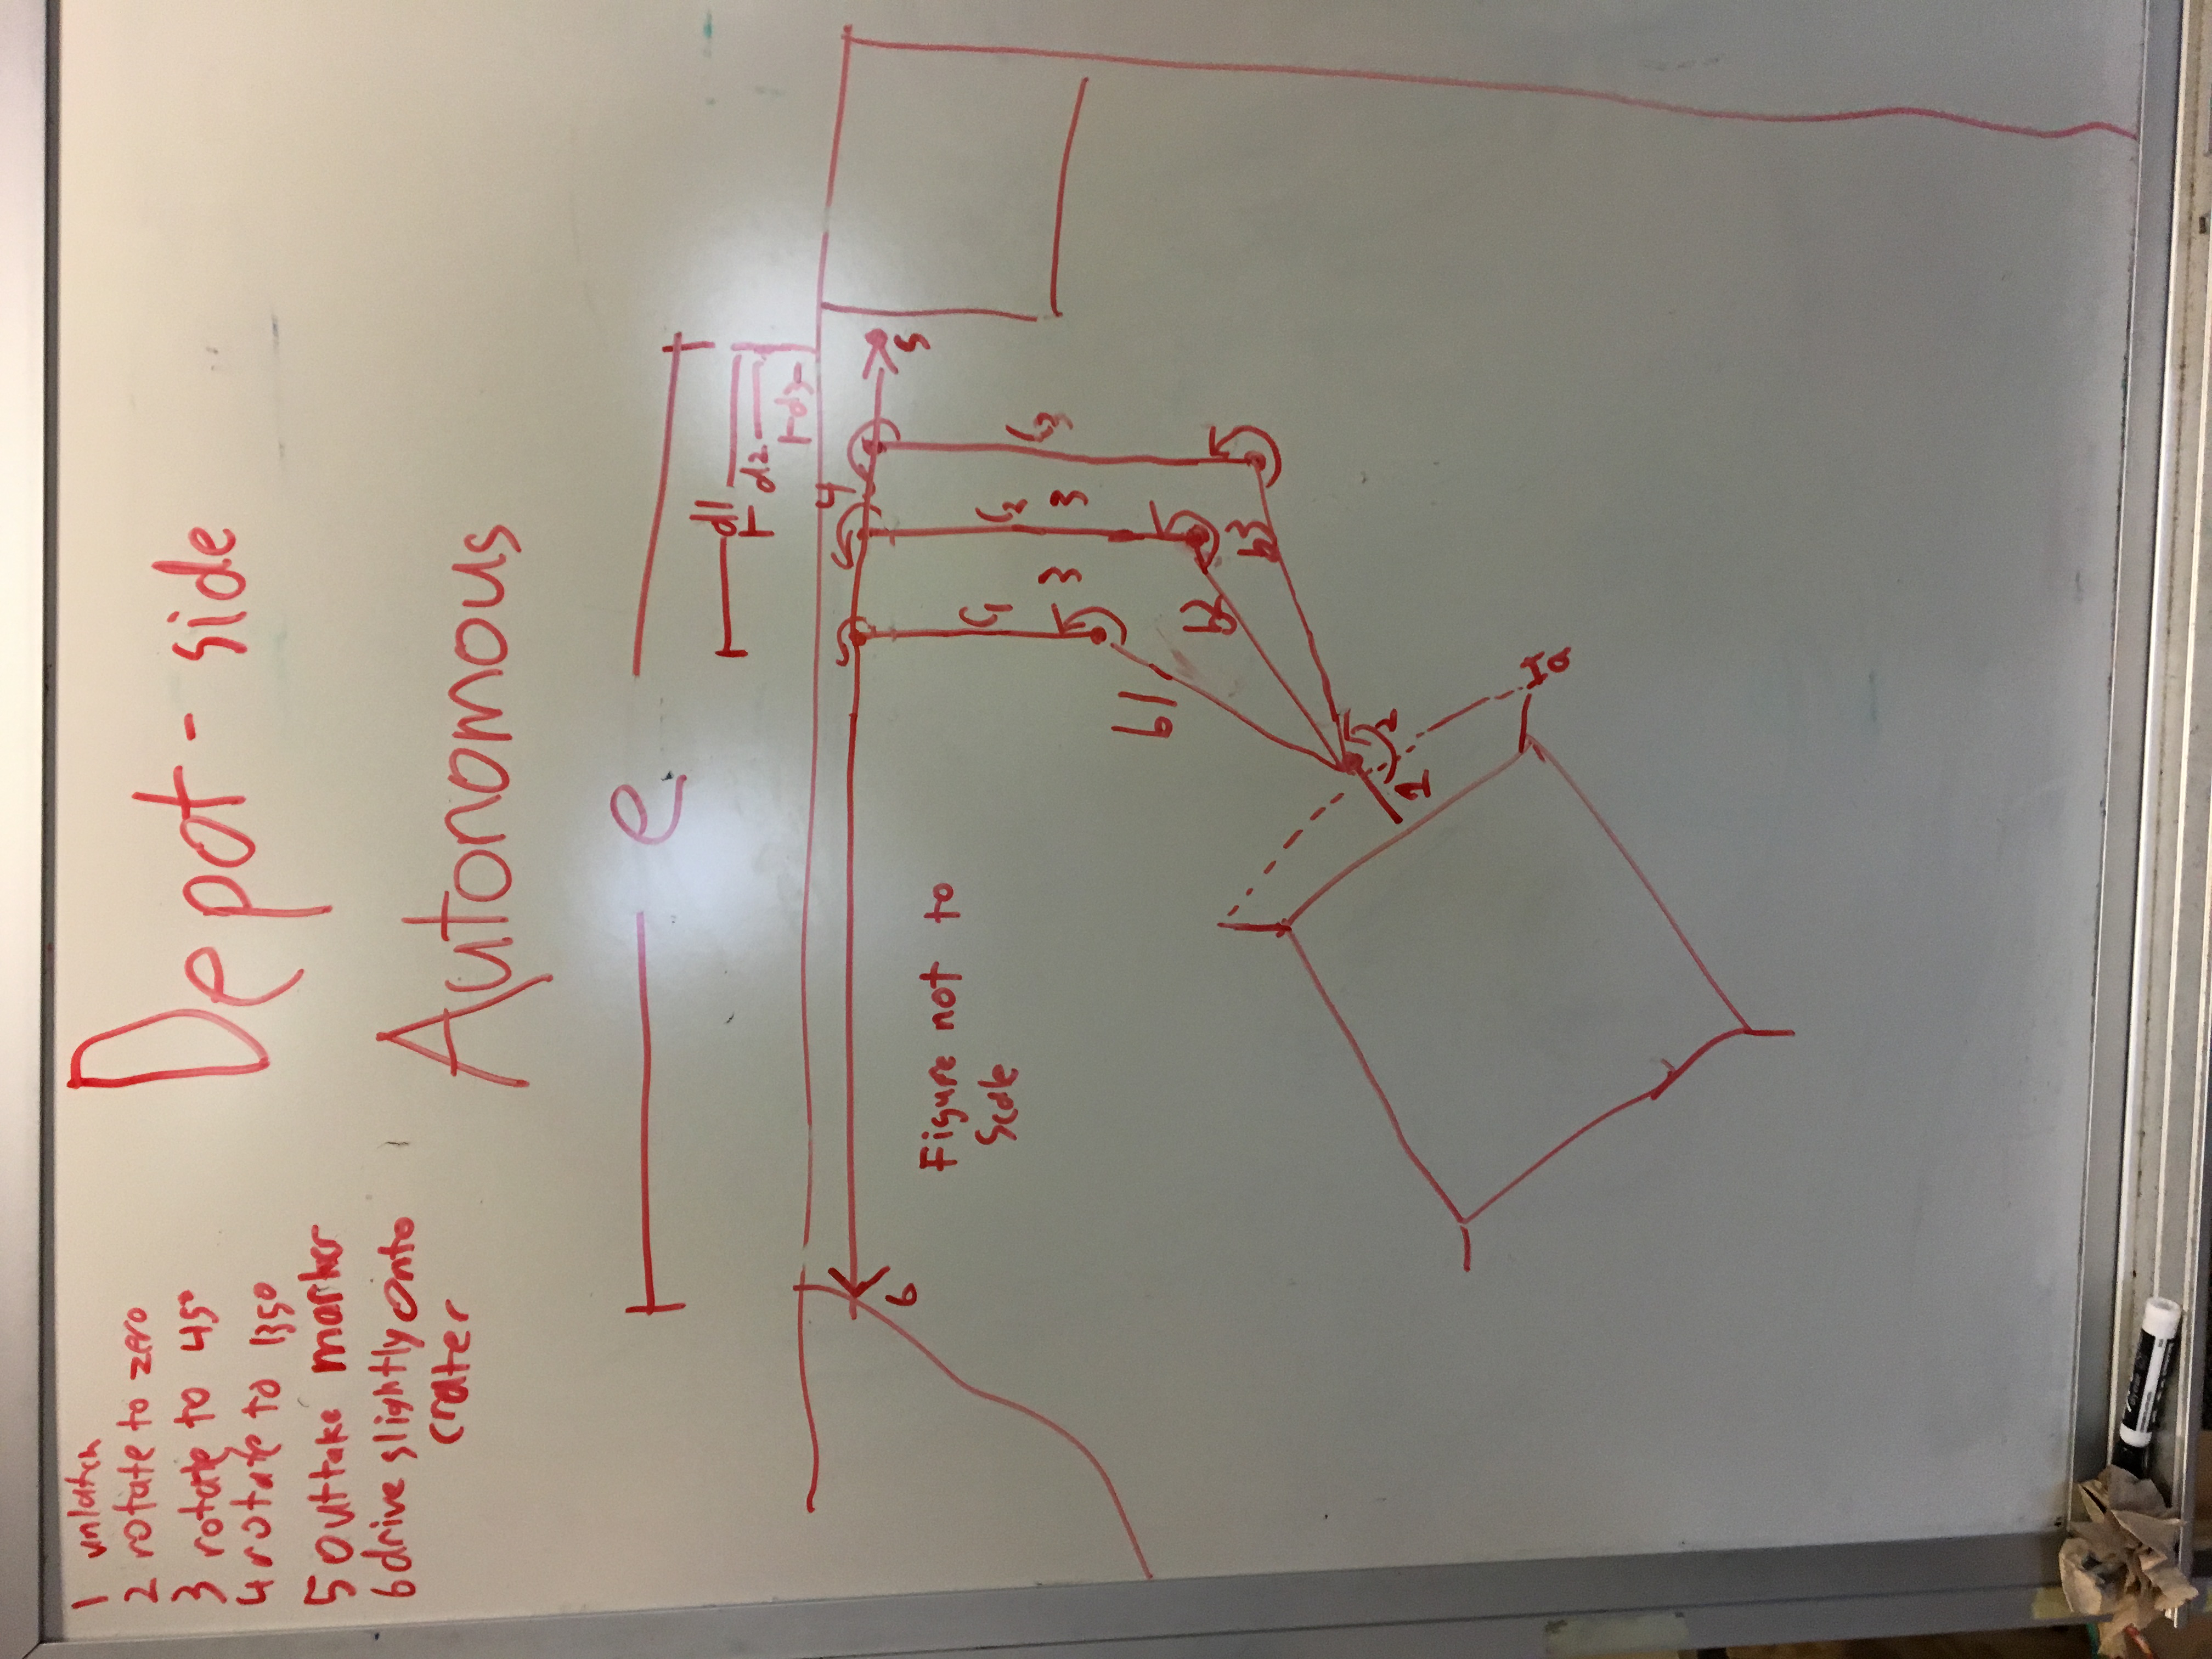 1 unlatch
2 rotate to zero
3 rotate to 45°
4 rotate to 135°
5 outtake marker
6 drive slightly onto
crater
Depot-side
Autonomous
e
d1
d2
d3
4
6
5
Figure not to
Scale
C1
C2
C3
3
3
b1
b2
b3
2
1
a